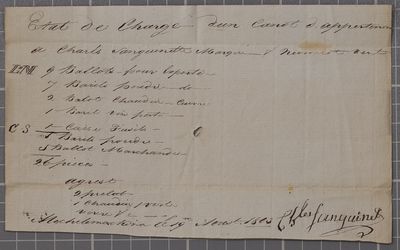 Etat de Charge d'un Canot d'appartenan
a Charle Sanguinette Marqué & Numeroté
9 Ballots pour
7 Barils poudre do
2 Balot Chaudier Cuivre
1 Baril vin porto
C S 1 Caisse Fusils
Barils poudre
Ballot Marchandise
26 pieces
agrest
2 prelat
1 Chaudier
Michilimackina le 19 Aout 1803 Chles Sanguinet